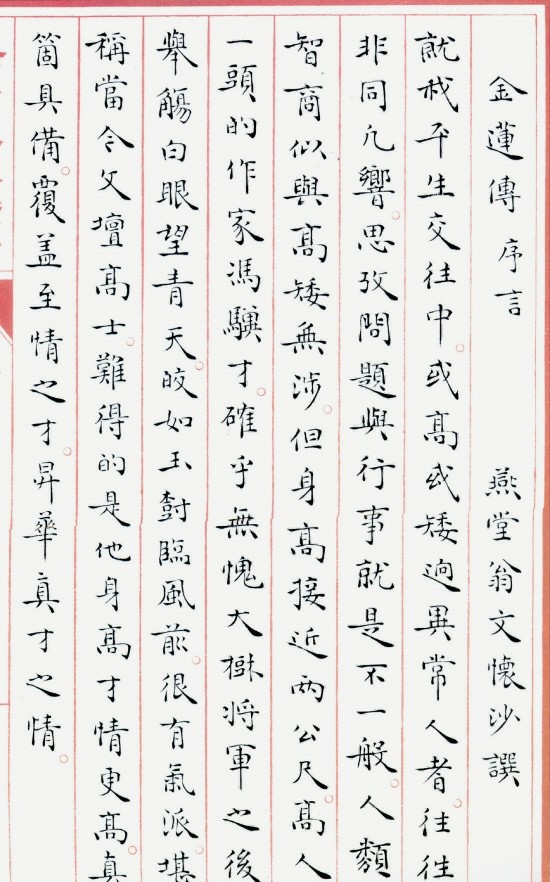 金蓮傳 序言 燕堂翁文懷沙譔
就我平生交往中。或高或矮迥異常人者。往往
非同凡響。思攷問題與行事就是不一般。人類
智商似與高矮無涉。但身高接近兩公尺。高人
一頭的作家馮驥才。確乎無愧大樹將軍之後
舉觴白眼望青天。皎如玉樹臨風前。很有氣派。堪
稱當今文壇高士。難得的是他身高才情更高。真
箇具備。覆蓋至情之才。昇華真才之情。